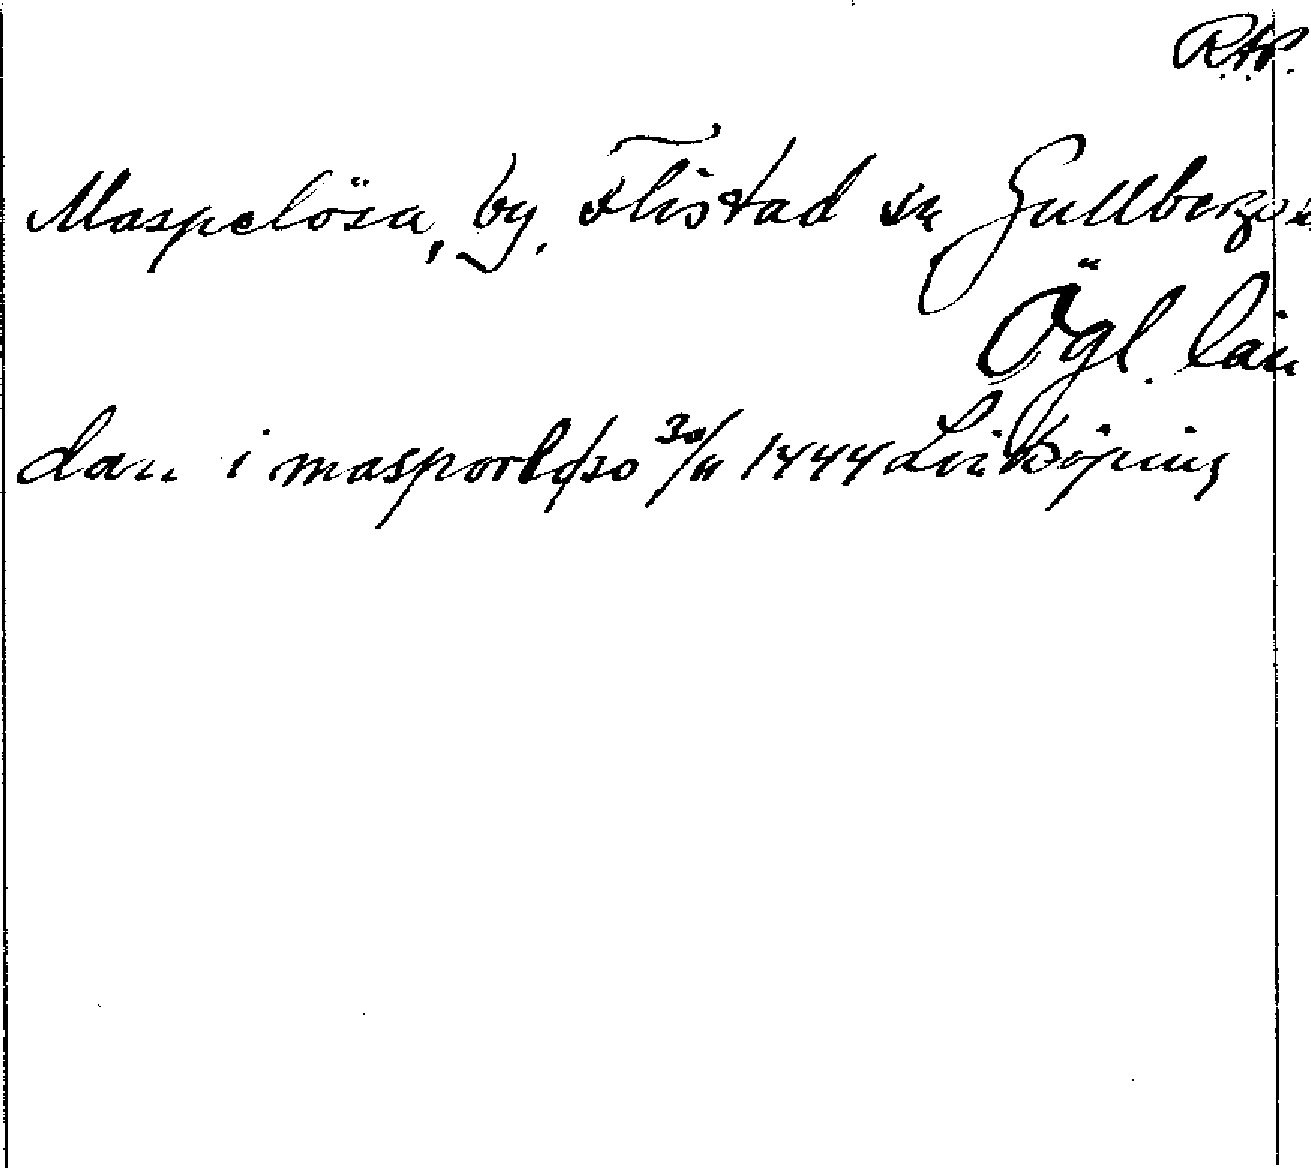 R.A.P.
Maspelösa, by, Flistad sn Gullbergs
Ögl. län
dan i masporløso 30/11 1444 Linköping